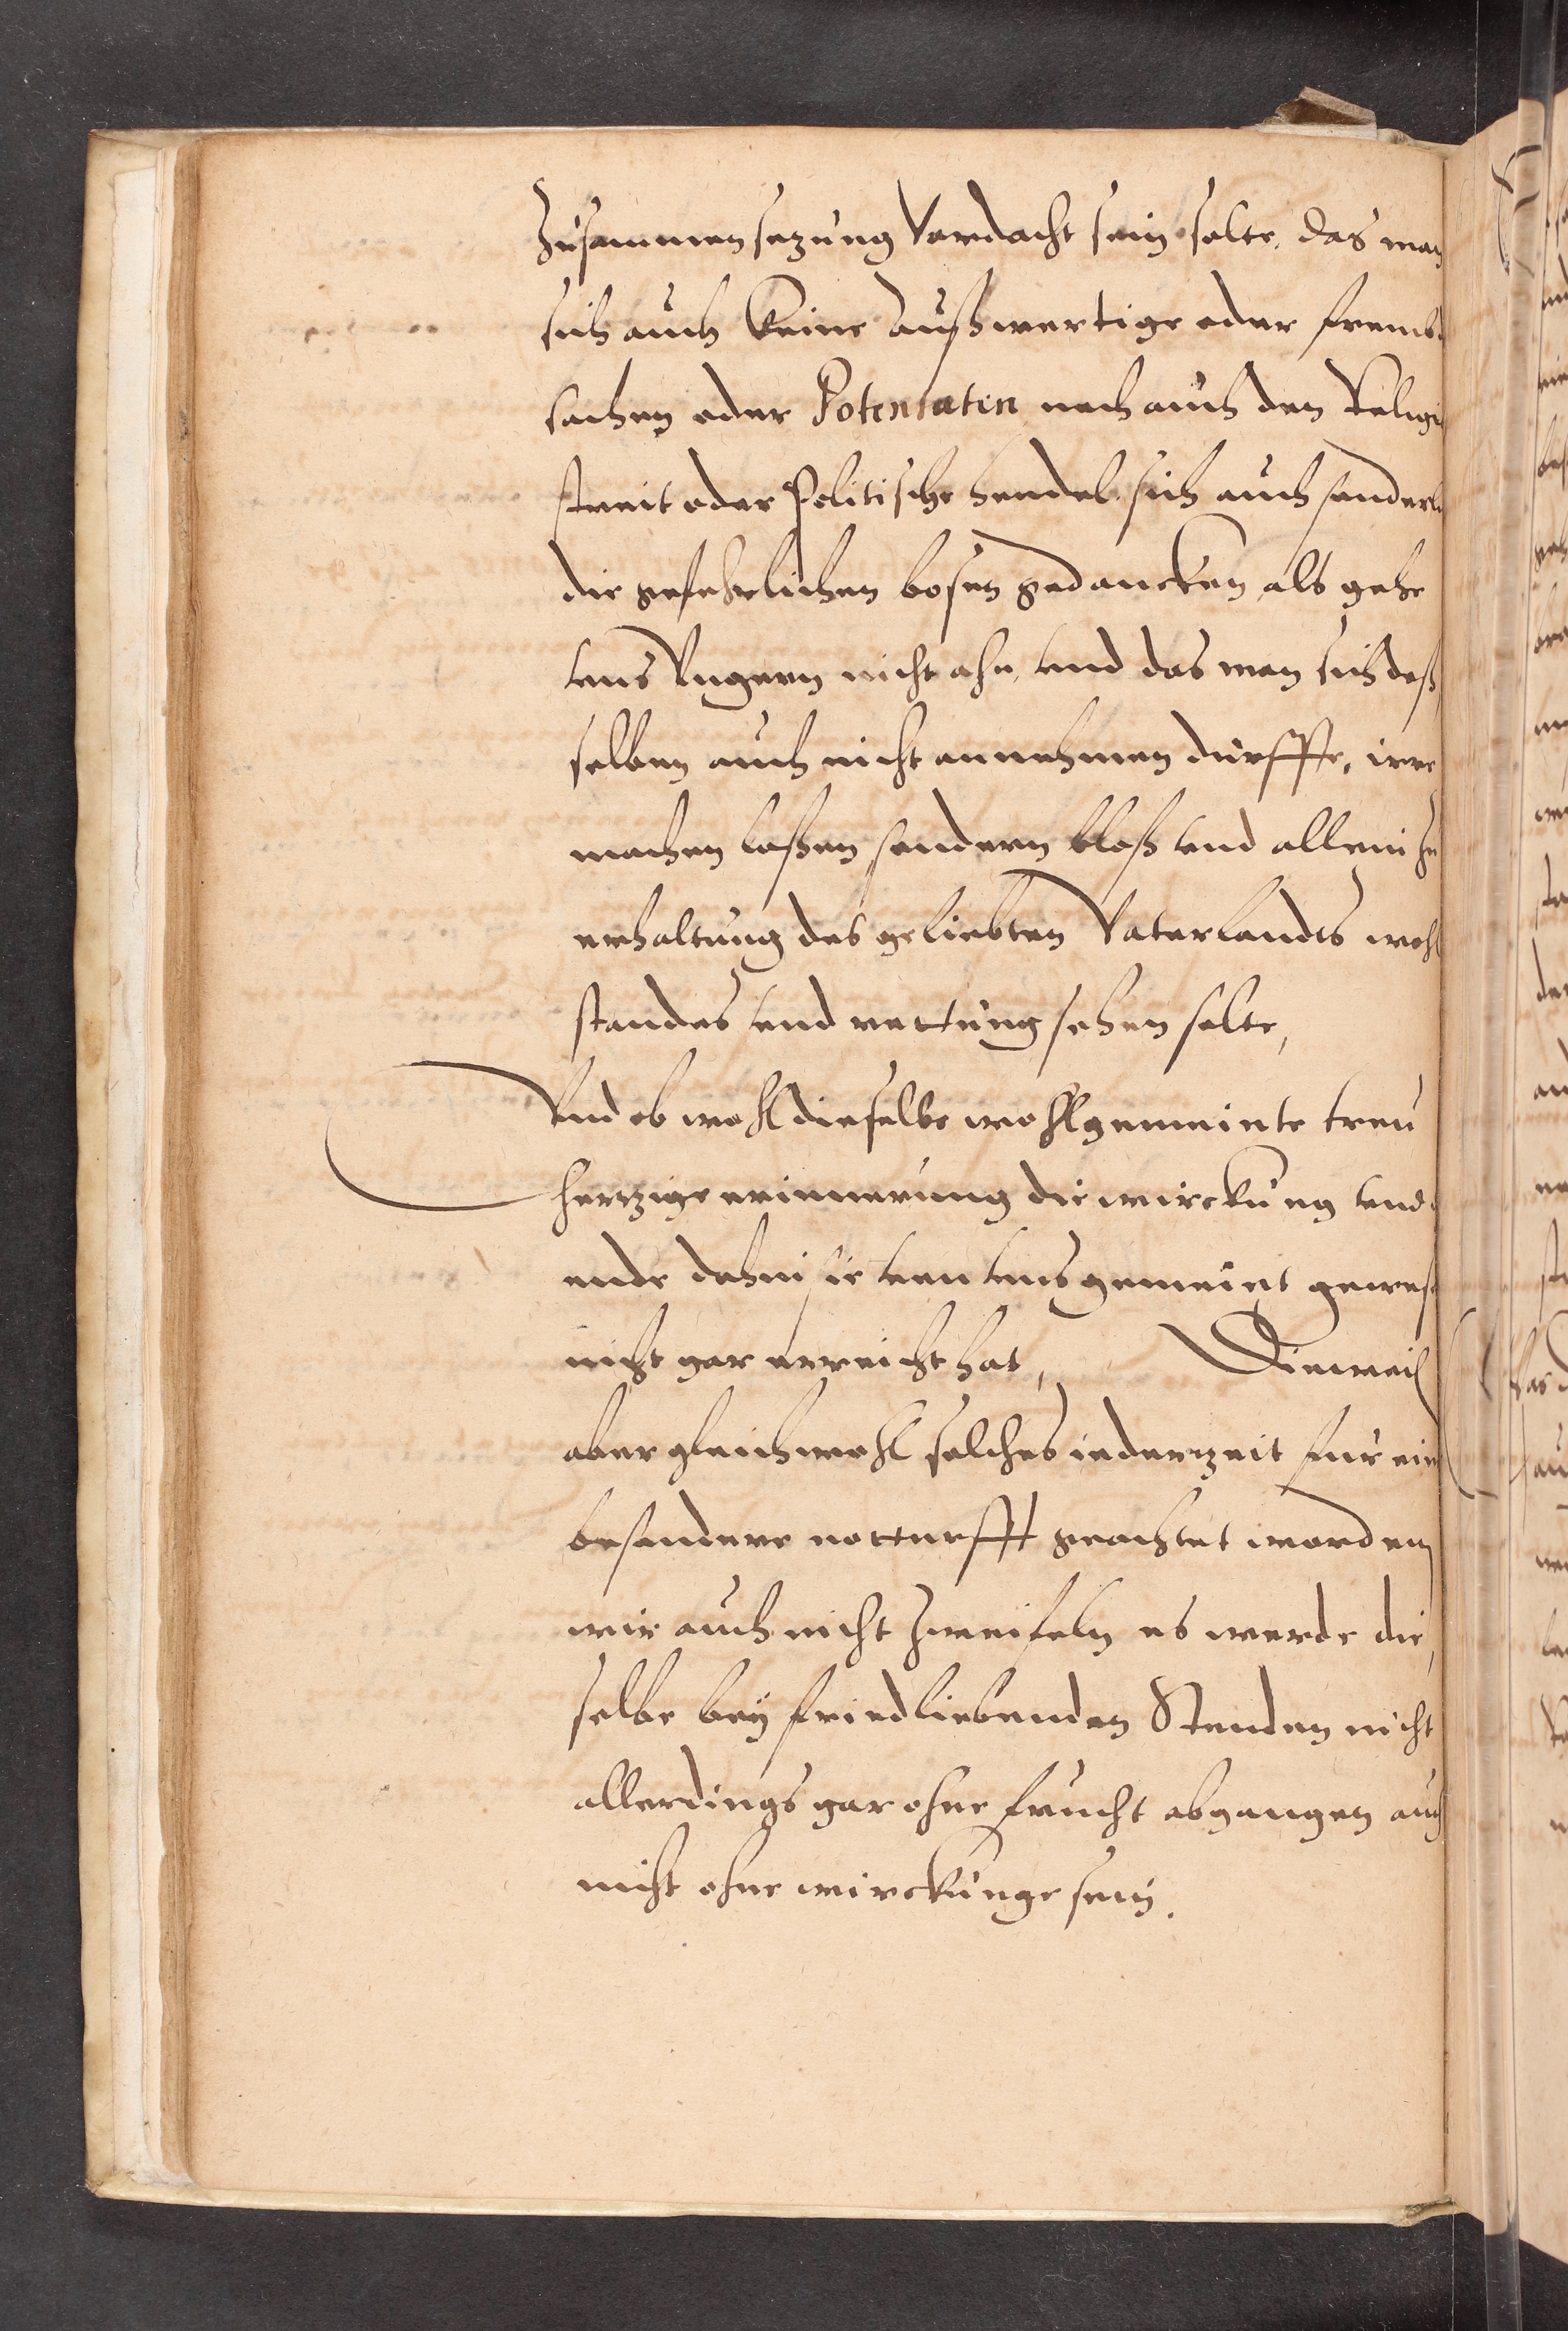 Zusammensezung Verdacht sein solte, das man
sich auch keine Außwertige oder frembd
sachen oder Potentaten noch auch den Religi
streit oder Politische hendel sich auch sonderl
die gefehrlichen bosen gedancken als gehe
vns Vngern nicht ahn, vnd das man sich deß
selben auch nicht annehmen durffte, irre
machen laßen sondern bloß vnd allein zu
erhaltung des geliebten Vaterlandes wohl
standes vnd rettung sehen solte,
Vnd ob wohl dieselbe wohlgemeinte treu
hertzige erinnerung die wirckung vnd
ende dahin sie von vns gemeint gewes
nicht gar erreicht hat, Dieweil
aber gleichwohl solches iederzeit fur ein
besondere notturfft geachtet worden
wir auch nicht zweifeln es werde die
selbe bey friedliebenden Stenden nicht
allerdings gar ohne frucht abgangen auch
nicht ohne wirckunge sein.